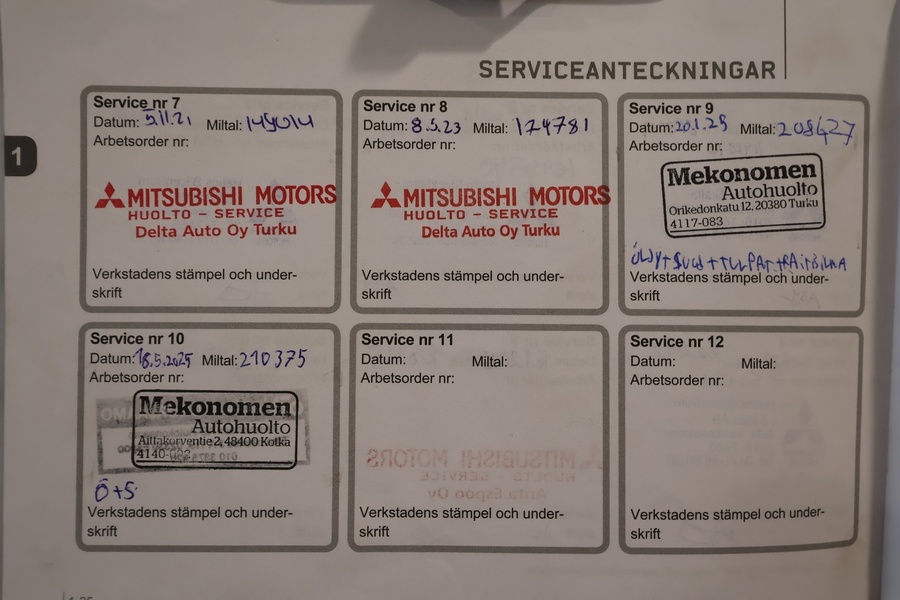 SERVICEANTECKNINGAR
1
Service nr 7
Datum: 5.11.21 Miltal: 149014
Arbetsorder nr:
MITSUBISHI MOTORS
HUOLTO - SERVICE
Delta Auto Oy Turku
Verkstadens stämpel och under-
skrift
Service nr 8
Datum: 8.5.23 Miltal: 174781
Arbetsorder nr:
MITSUBISHI MOTORS
HUOLTO - SERVICE
Delta Auto Oy Turku
Verkstadens stämpel och under-
skrift
Service nr 9
Datum: 20.1.25 Miltal: 208427
Arbetsorder nr:
Mekonomen
Autohuolto
Orikedonkatu 12, 20380 Turku
4117-083
Verkstadens stämpel och under-
skrift
Service nr 10
Datum: 18.5.2025 Miltal: 210375
Arbetsorder nr:
Mekonomen
Autohuolto
Aittakorventie 2, 48400 Kotka
Ö+S
Verkstadens stämpel och under-
skrift
Service nr 11
Datum: Miltal:
Arbetsorder nr:
Verkstadens stämpel och under-
skrift
Service nr 12
Datum: Miltal:
Arbetsorder nr:
Verkstadens stämpel och under-
skrift